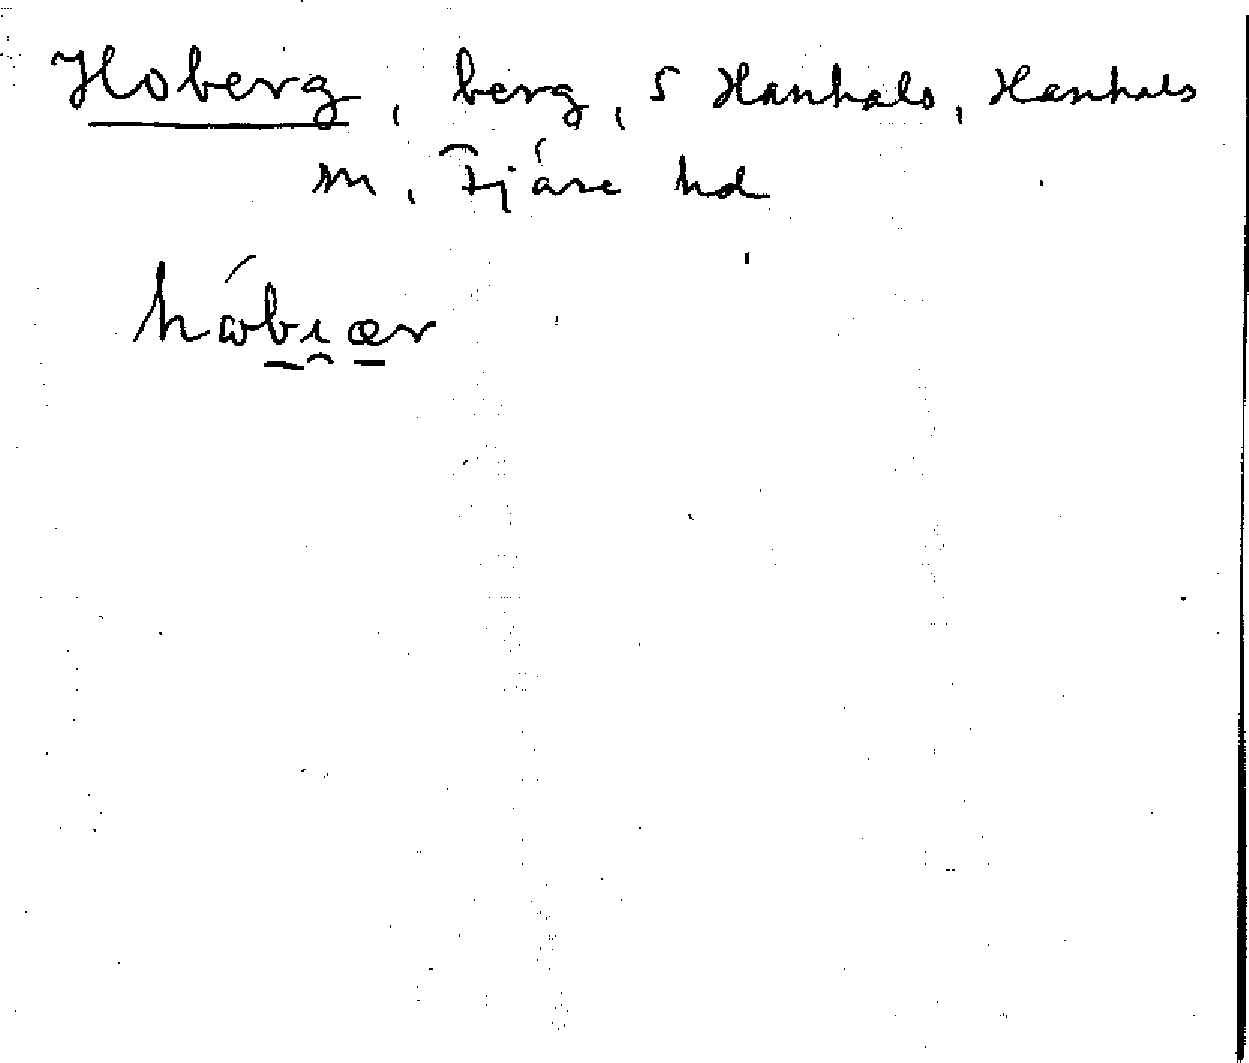 Hoberg, berg, S Hanhals, Hanhals
sn, Fjäre hd